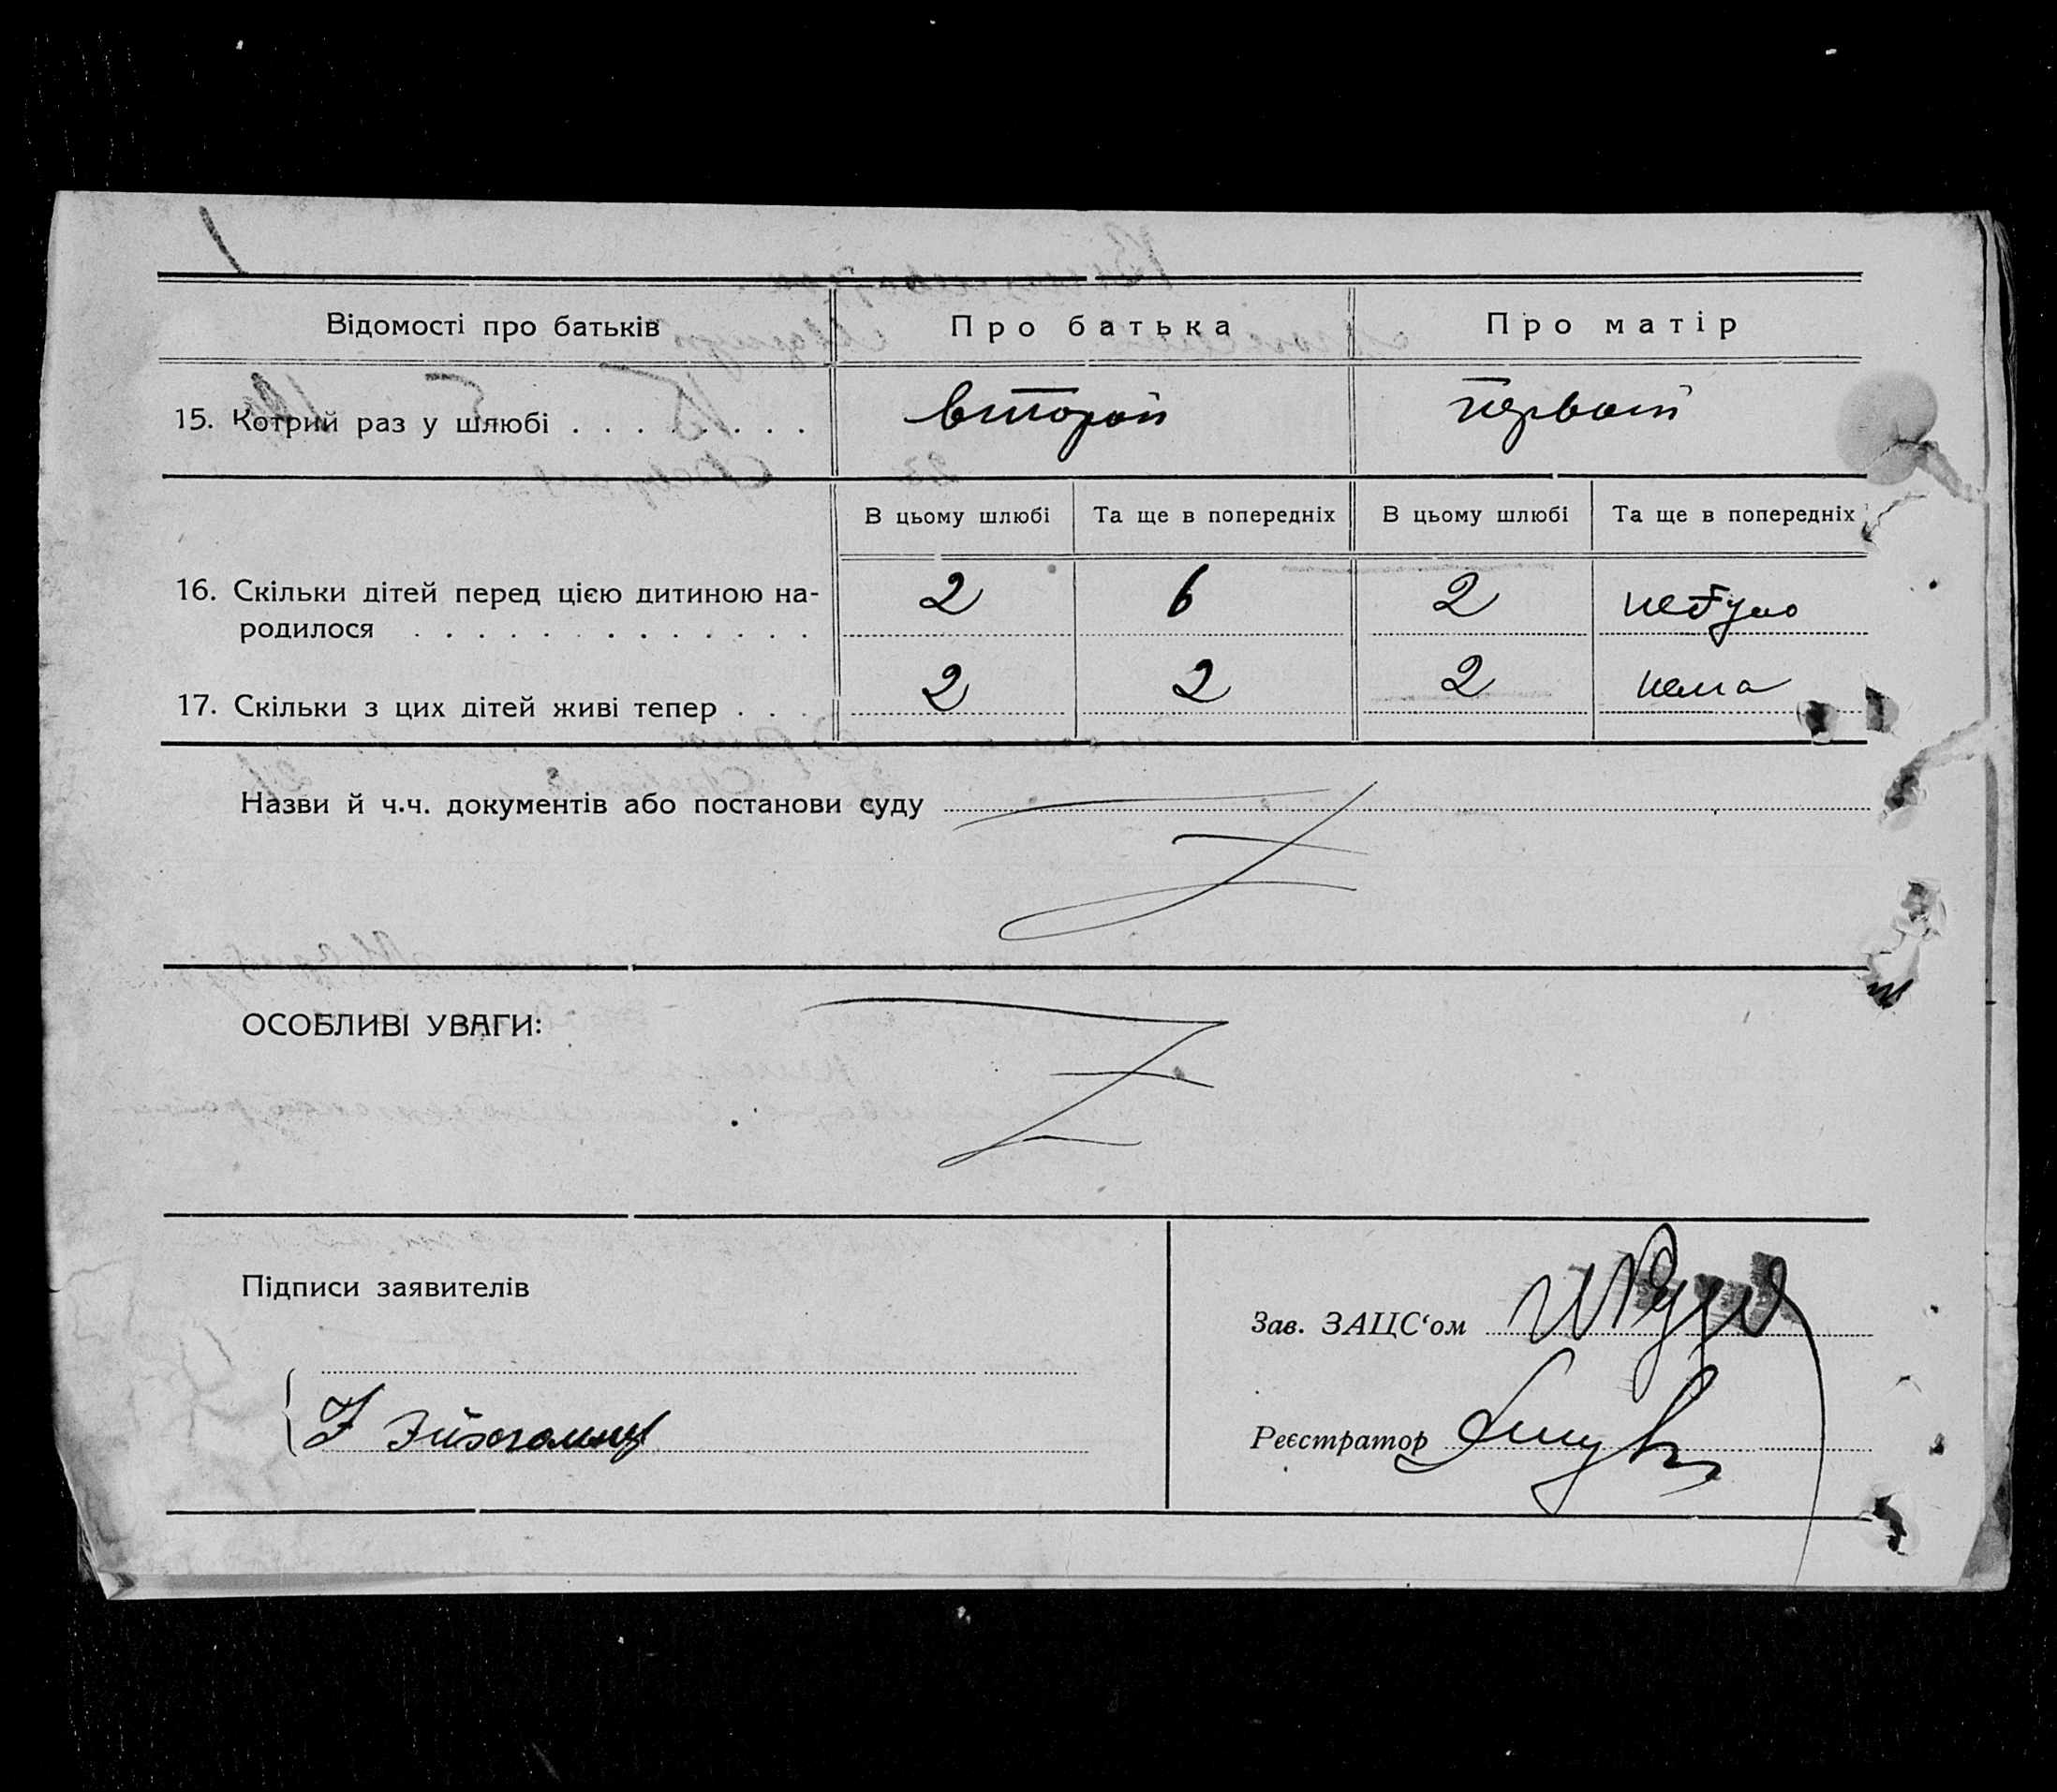 Відомості про батьків
Про батька
Про матір
15. Котрий раз у шлюбі . . . . . . . .
второй
первый
В цьому шлюбі
Та ще в попередніх
В цьому шлюбі
Та ще в попередніх
16. Скільки дітей перед цією дитиною на-
родилося . . . . . . . . . . . . .
2
6
2
небуло
17. Скільки з цих дітей живі тепер . . .
2
2
2
нема
Назви й ч.ч. документів або постанови суду
ОСОБЛИВІ УВАГИ:
Підписи заявителів
Зав. ЗАЦС‘ом
Реєстратор